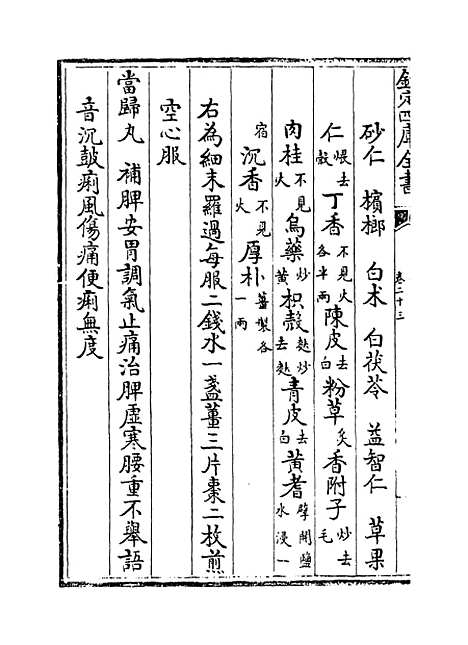 欽定四庫全書 卷二十三
砂仁 檳榔 白术 白茯苓 益智仁 草果
仁煨去殼 丁香不見火各半兩 陳皮去白 粉草炙 香附子炒去毛
肉桂不見火 烏藥炒黃 枳殼麩炒去麩 青皮去白 黃耆劈開鹽水浸一
宿 沉香不見火 厚朴薑製各一兩
右為細末羅過每服二錢水一盞薑三片棗二枚煎
空心服
當歸丸 補脾安胃調氣止痛治脾虛寒腰重不舉語
音沉皷痢風傷痛便痢無度